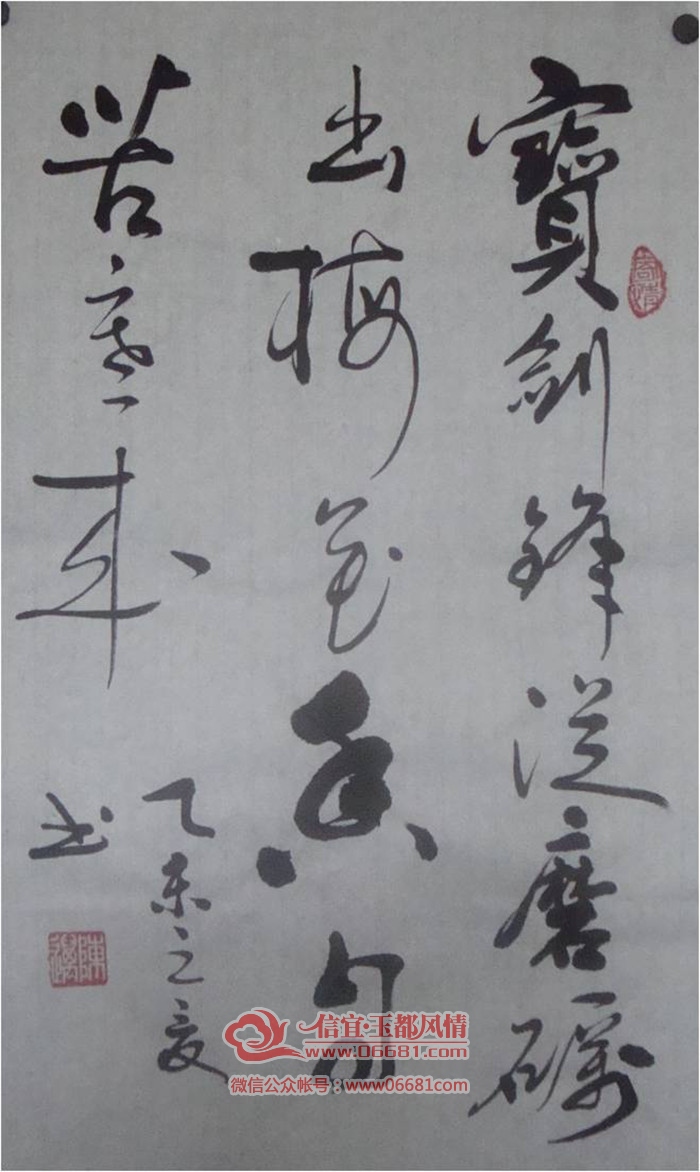 寶劍鋒從磨礪
出梅花香自
苦寒來
乙未之夏
书
信宜·玉都风情
www.06681.com
微信公众帐号：www.06681.com